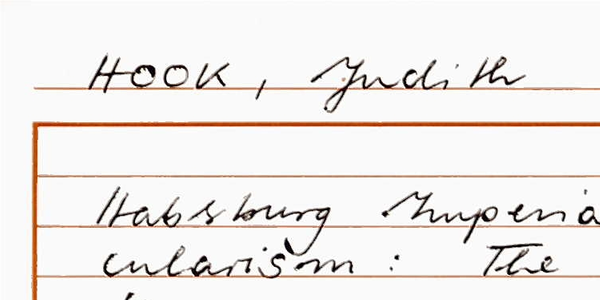 HOOK, Judith
Habsburg Imperia
cularism: The